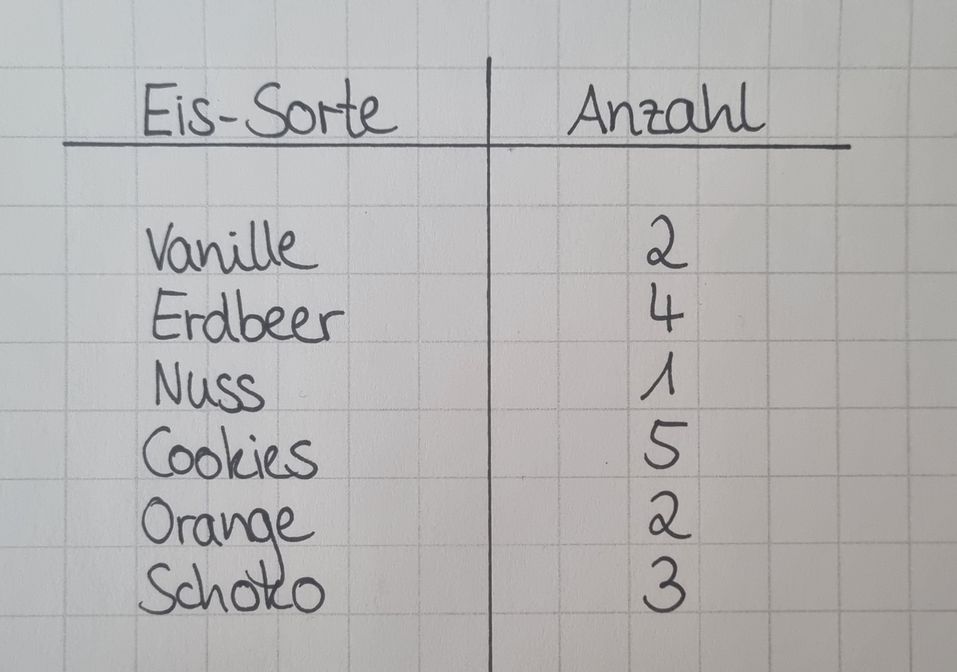 Eis-Sorte Anzahl
Vanille 2
Erdbeer 4
Nuss 1
Cookies 5
Orange 2
Schoko 3